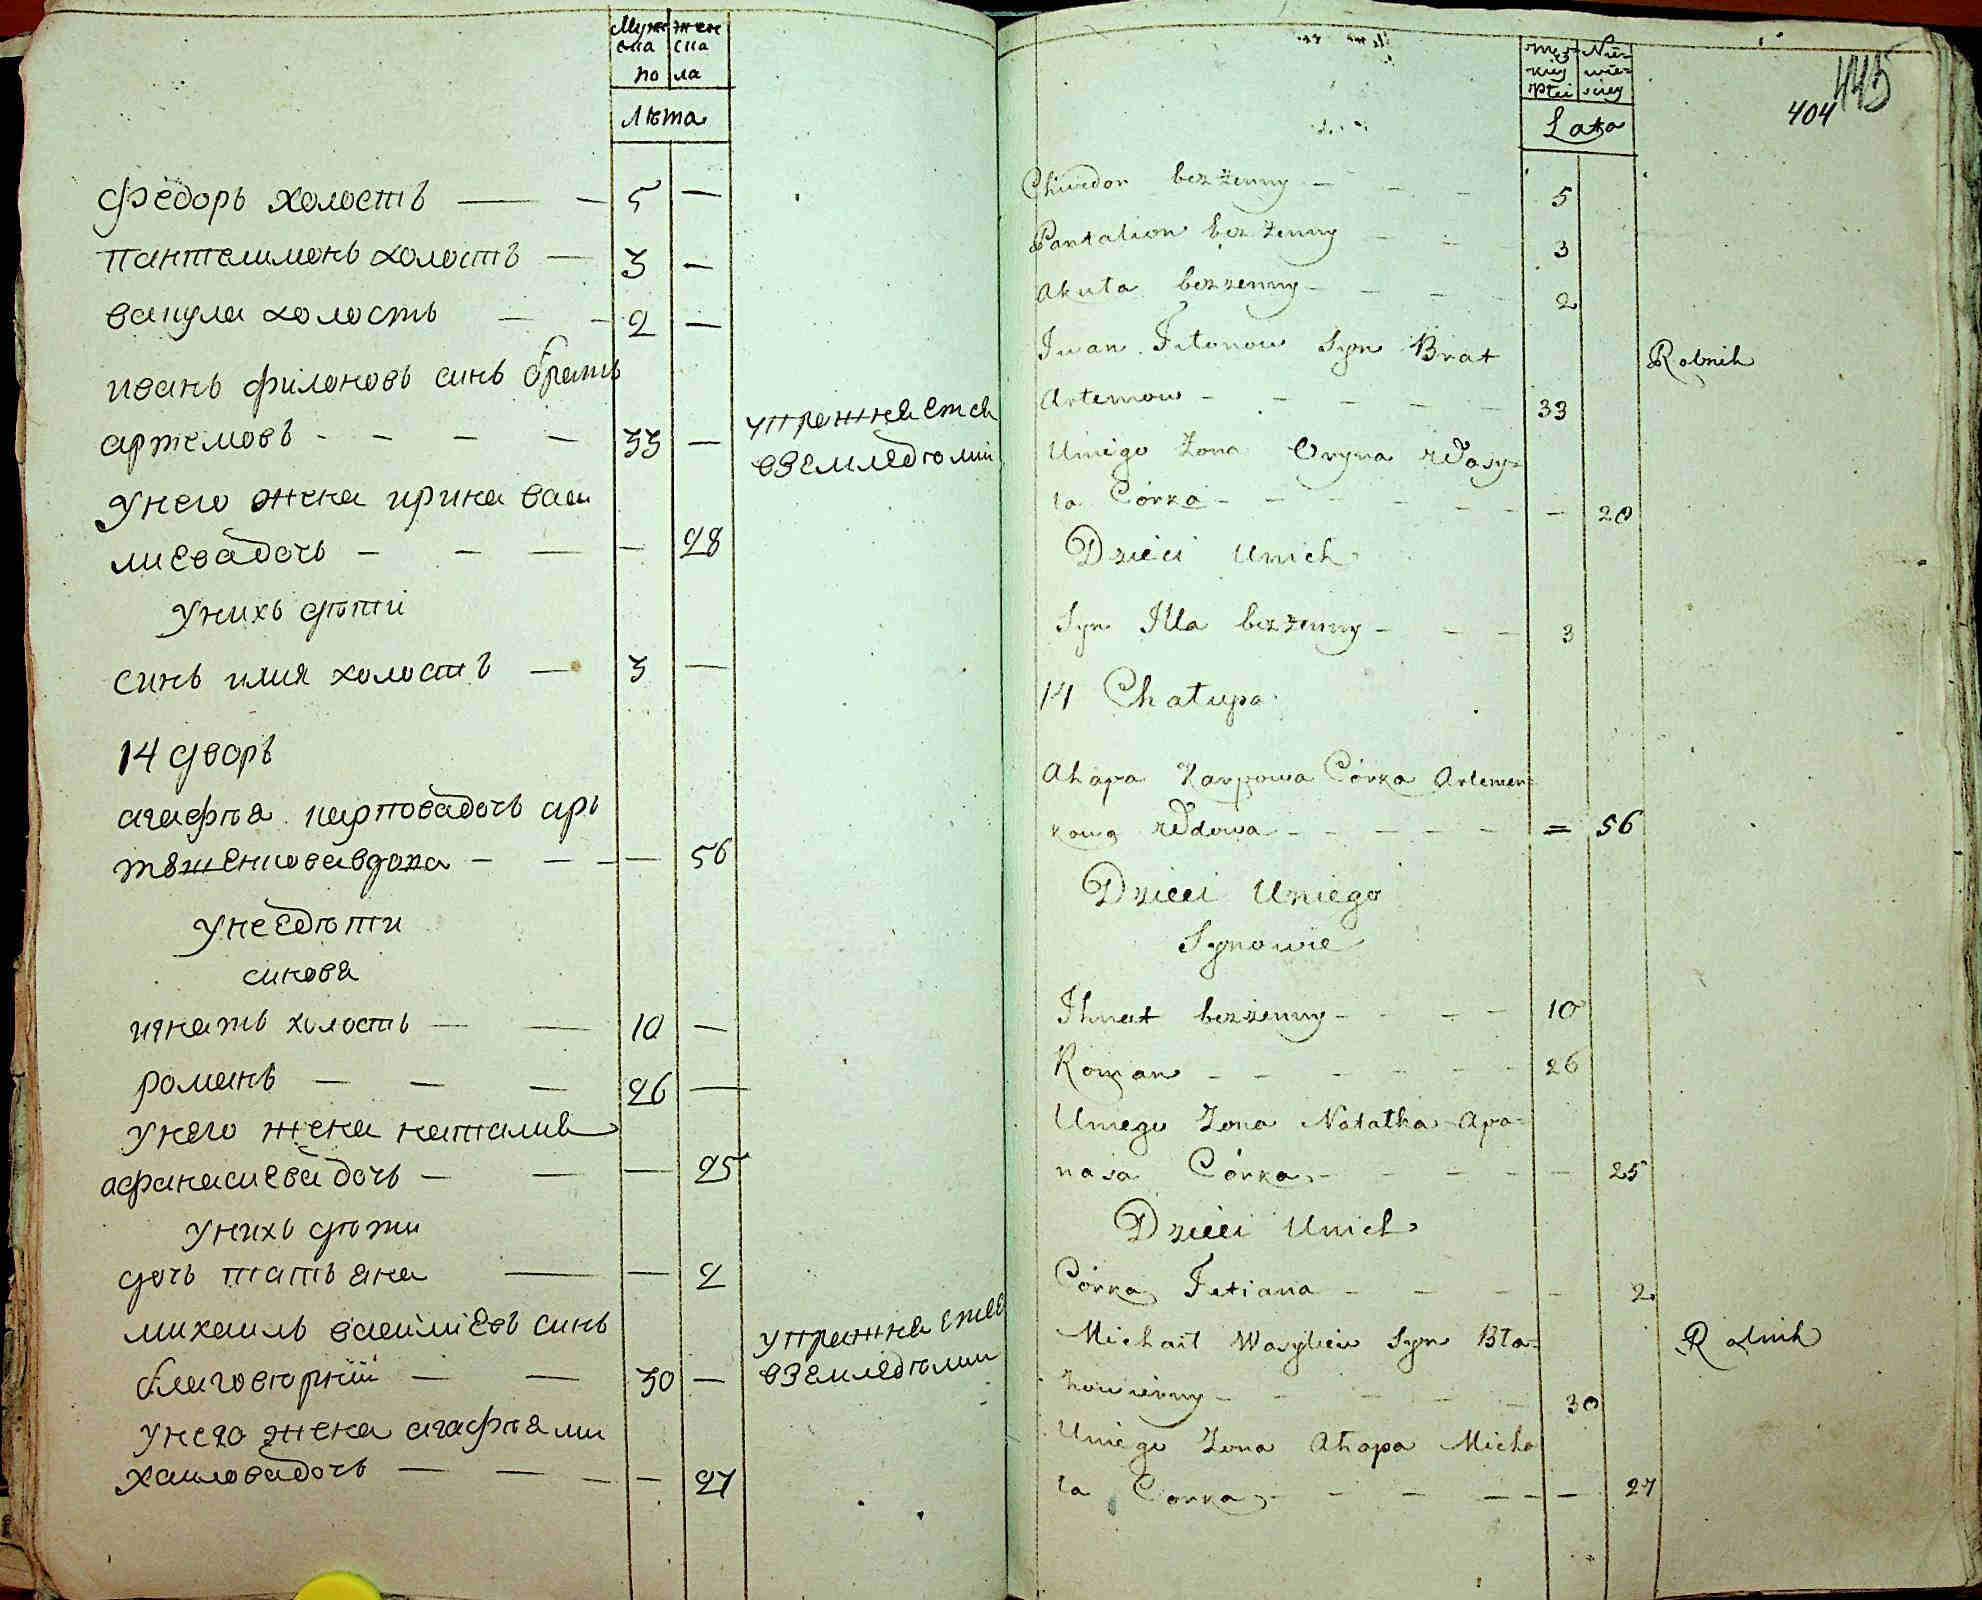 Мужеска женска
по ла
Лѣта
Федоръ холостъ — — 5 —
Пантелимонъ холостъ — 3 —
вакула холостъ — — 2 —
иванъ филоновъ синъ братъ
артемовъ - - - - 33 — упражнается
вземледѣлии
Унего жена ирина васи
лиева дочь — — — — 28
Унихъ дѣти
синъ илия холостъ — 3 —
14 дворъ
агафѣя карпова дочь арь
тѣменкова вдова — — — — 56
Унее дѣти
синовя
игнатъ холостъ — — 10 —
романъ — — — 26 —
Унего жена наталия
афанасиева дочь — — — 25
Унихъ дѣти
дочь татьяна — — 2
михаилъ василиевъ синъ упражнается
благовѣрний — — 30 — вземледѣлии
Унего жена агафѣя ми
хаилова дочь — — — — 27
404 445
męzkiey Niewie-
Płci sciey
Lata
Chwedor bezżenny — — — 5
Pantalion bezżenny — — — 3
Akuła bezżenny — — — 2
Iwan Filonow Syn Brat Rolnik
Artemow — — — — — 33
Uniego Żona Oryna Wasy-
la Córka — — — — — — — 28
Dzieci Unich
Syn Illa bezżenny — — — 3
14 Chałupa
Ahapa Karpowa Córka Artemen-
kowa Wdowa — — — — — = 56
Dzieci Uniego
Synowie
Ihnat bezżenny — — — — 10
Roman — — — — — — 26
Uniego Żona Natałka Apa-
nasa Córka — — — — — 25
Dzieci Unich
Córka Tetiana — — — — — 2
Michaił Wasyliew Syn Bła- Rolnik
howierny — — — — — 30
Uniego Żona Ahapa Micha
ła Corka — — — — — — 27